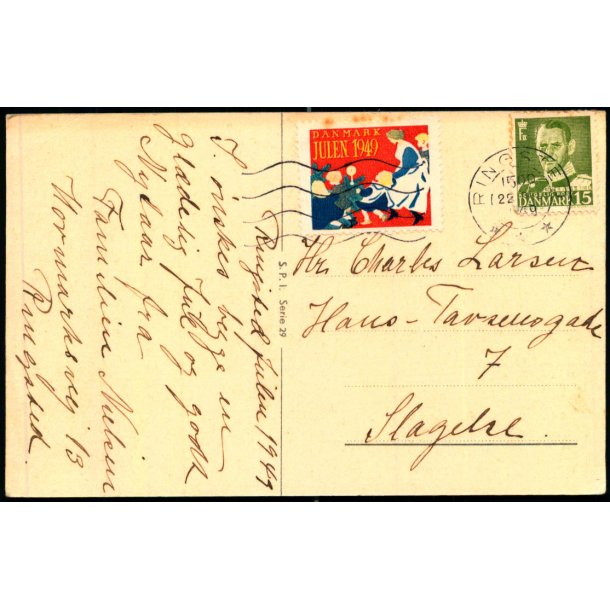 Ringsted Julen 1949
I ønskes begge en
glædelig Jul og godt
Nytaar fra
Familien Nielsen
Normarksvej 13
Ringsted.
S. P. I. Serie 29
DANMARK
JULEN 1949
RINGSTED
15
22
49
DANMARK 15
Hr. Charles Larsen
Hans-Tavsensgade
7
Slagelse.